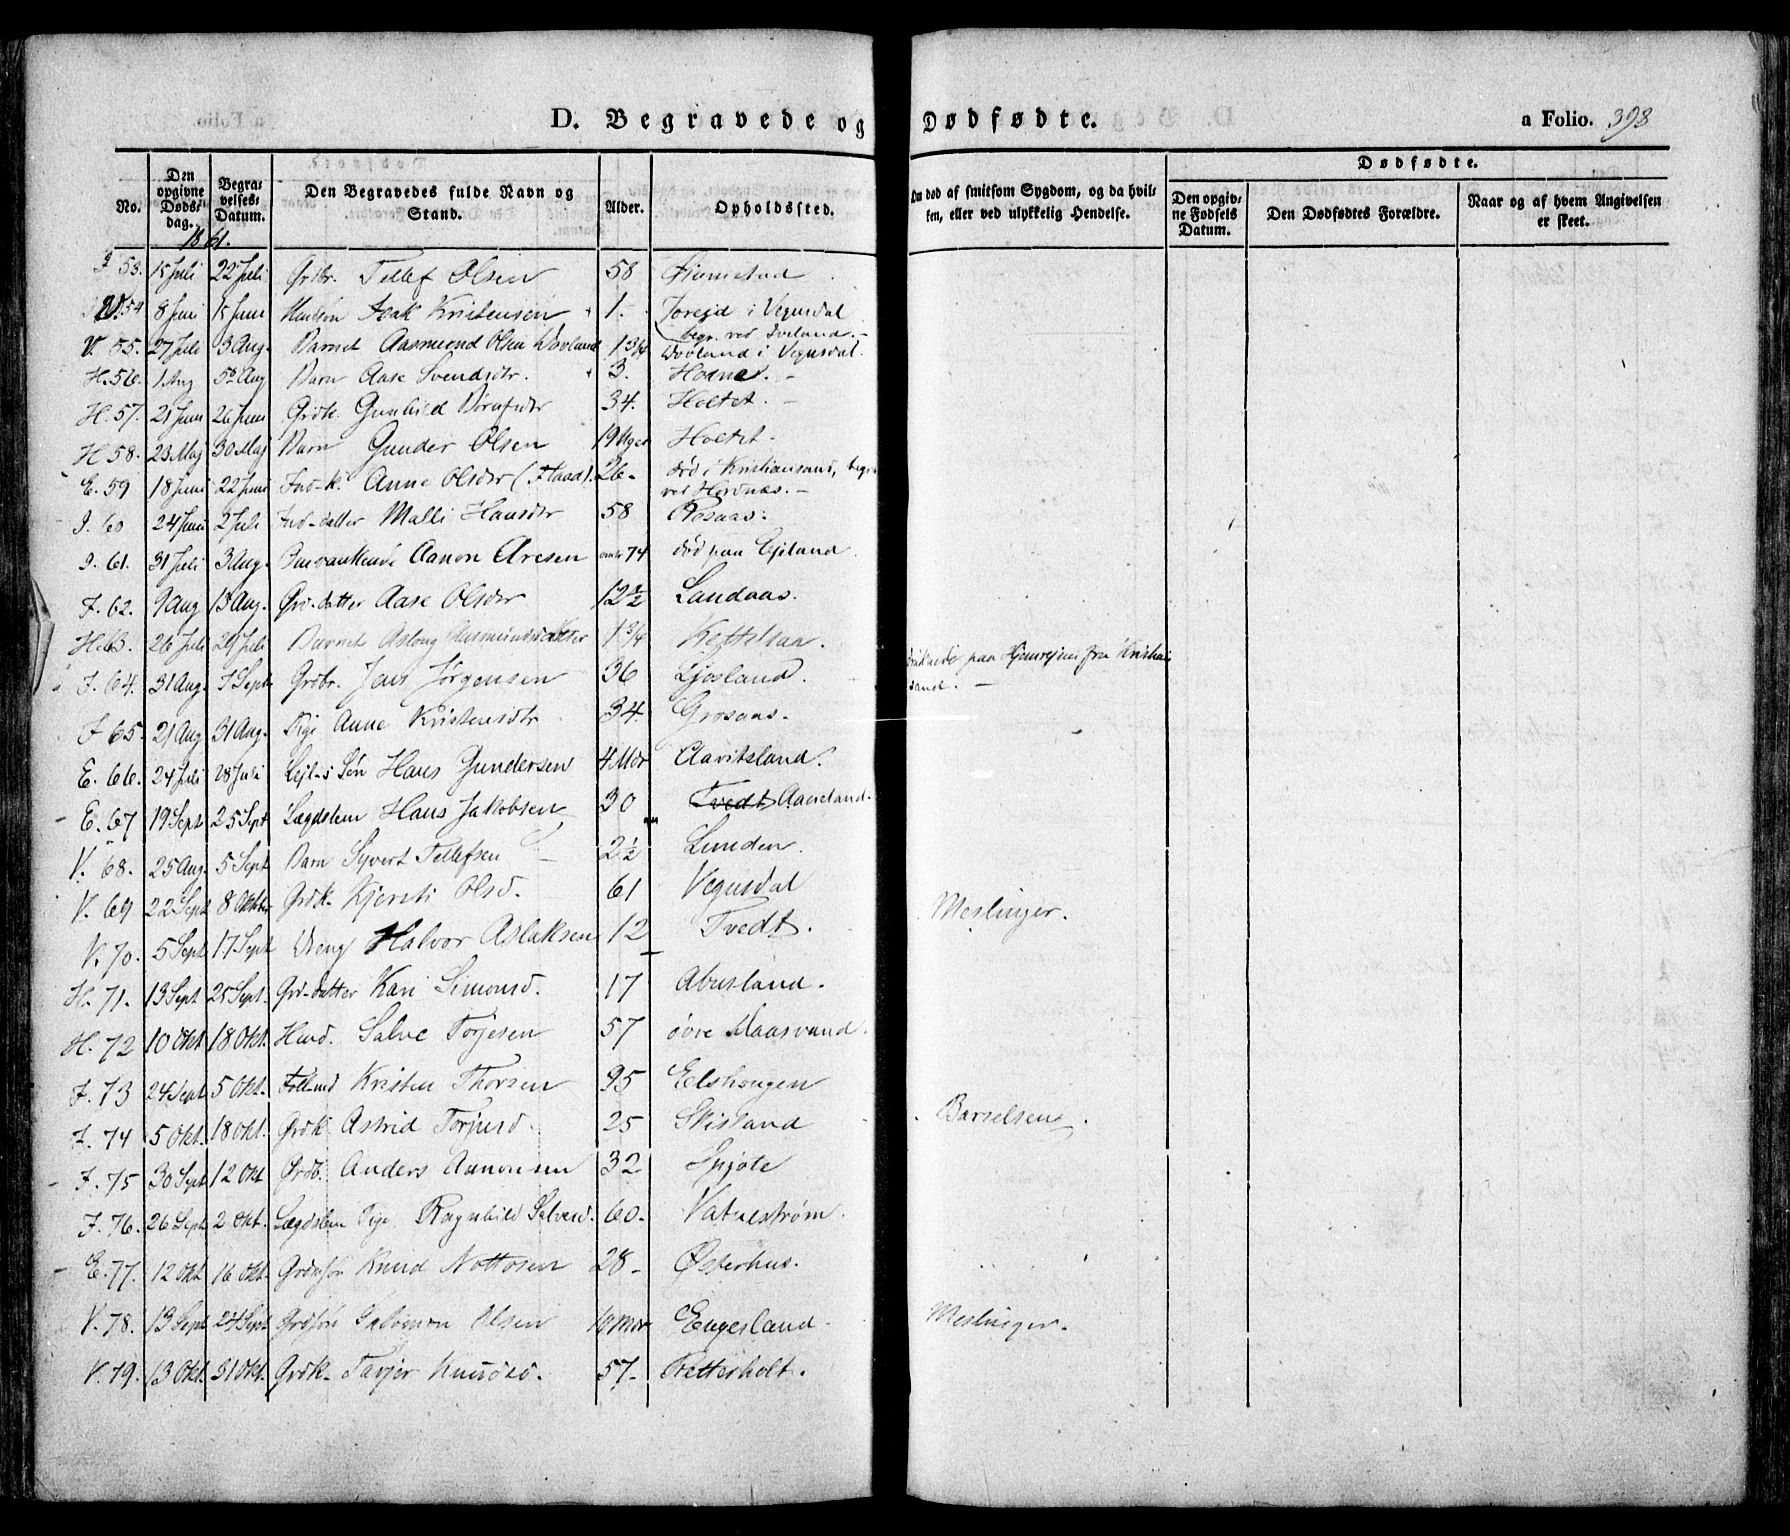 D. Begravede og Dødfødte. a Folio. 398
No. Den opgivne Døds-dag. Begra-velses-Datum. Den Begravedes fulde Navn og Stand. Alder. Opholdssted. Om død af smitsom Sygdom, og da hvil-ken, eller ved ulykkelig Hendelse. Dødfødte. Den opgiv-ne Fødsels Datum. Den Dødfødtes Forældre. Naar og af hvem Angivelsen er skeet.
1861.
53. 15 Juli 22 Juli Grdbr. Tellef Olsen 58
V. 54 8 Juni 15 Juni Isak Kristensen 1.- i Vegusdal
begr. ved Iveland.-
V. 55. 27 Juli 3 Aug. Barnet Aasmund Olsen Dovland 1 3/4 Dovland i Vegusdal.
H. 56. 1 Aug 5te Aug Barn Aase Svendsdtr. 3. -
H. 57. 21 Juni 26 Juni Grdk. Gunhild 34. Holtet. -
H. 58. 23 Maj 30 Maj Barn Gunder Olsen 19 Uger Holtet-
E. 59 18 Juni 22 Juni Ind-k. Anne Olsdtr (Flaad). 26- død i Kristiansand, begr
ved Hordnæs. -
I. 60 24 Juni 2 Juli Ind-datter Malli Hansdtr 58 Rosaas.
I. 61. 31 Juli 3 Aug. Aanon Aresen 74 død paa Ejeland.
I. 62. 9 Aug 13 Aug. Grd-datter Aase Olsdtr 12 1/2 Landaas.
H. 63. 26 Juli 29 Juli Barnet Aslaug 1 3/4
I. 64. 31 Aug. 7 Sept. Grdbr. Jens Jørgensen 36 Ljosland. druknede paa Hjemrejsen fra Kristian
sand. -
I. 65. 21 Aug 31 Aug. Pige Anne Kristensdtr 34. Grosaas.
E. 66. 24 Juli 28 Juli Lejl-s Søn Hans Gundersen 4 Mdr Clavitsland.
E. 67 19 Sept 25 Sept Lægdslem Hans Jakobsen 30 Tvedt Aaneland.
V. 68. 25 Aug. 5 Sept Barn Syvert Tellefsen - 2 1/2 Lunden.
V. 69 22 Sept 8 Oktbr Grdk. Kjersti Olsd. 61 Vegusdal Meslinger.
V. 70. 5 Sept 17 Sept Dreng Halvor Aslaksen 12 Tvedt.
H. 71. 13 Sept 25 Sept. Grd-datter Kari Simonsd. 17 Abusland.
H. 72 10 Okt. 18 Okt. Husd. Salve Torjesen 57 øvre Maasvand.
I. 73 24 Sept 5 Okt. Kristen Thorsen 95 Elshougen
I. 74 5 Okt. 18 Okt. Grdk Astrid Torjusd. 25 Skisland Barselseng.
I. 75 30 Sept 12 Okt Grdb. Anders Aanonsen 32 Spjote
I. 76. 26 Sept 2 Okt. Lægdslem Pige Ragnhild Salvesd. 60. Vatnestrøm.
E. 77. 12 Okt 16 Okt. Knud Nottosen 28- Østerhus.
V. 78. 13 Sept 24 Sept Salomon Olsen 10 Mdr Engesland. Meslinger.
V. 79. 13 Okt. 31 Okt. Grdk- Tarjer Knudsd. 57- Tretterholt.